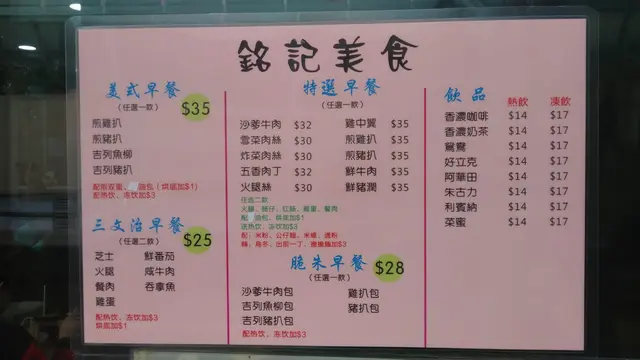 銘記美食
美式早餐
(任選一款)
$35
煎雞扒
煎豬扒
吉列魚柳
吉列豬扒
配煎双蛋、油包 (烘底加$1)
配热饮、冻饮加$3
三文治早餐
(任選二款)
$25
芝士 鮮番茄
火腿 咸牛肉
餐肉 吞拿魚
雞蛋
配热饮、冻饮加$3
烘底加$1
特選早餐
(任選一款)
沙爹牛肉 $32 雞中翼 $35
雪菜肉絲 $30 煎雞扒 $35
炸菜肉絲 $30 煎豬扒 $35
五香肉丁 $30 鮮牛肉 $35
火腿絲 $30 鮮豬潤 $35
任选二款
火腿、腸仔、红腸、雞蛋、餐肉
油包、烘底加$1
送热饮、冻饮加$3
配：米粉、公仔麵、米線、通粉
烏冬、出前一丁
脆朱早餐
(任選一款)
$28
沙爹牛肉包 雞扒包
吉列魚柳包 豬扒包
吉列豬扒包
配热饮、冻饮加$3
飲品
熱飲 凍飲
香濃咖啡 $14 $17
香濃奶茶 $14 $17
鴛鴦 $14 $17
好立克 $14 $17
阿華田 $14 $17
朱古力 $14 $17
利賓納 $14 $17
菜蜜 $14 $17